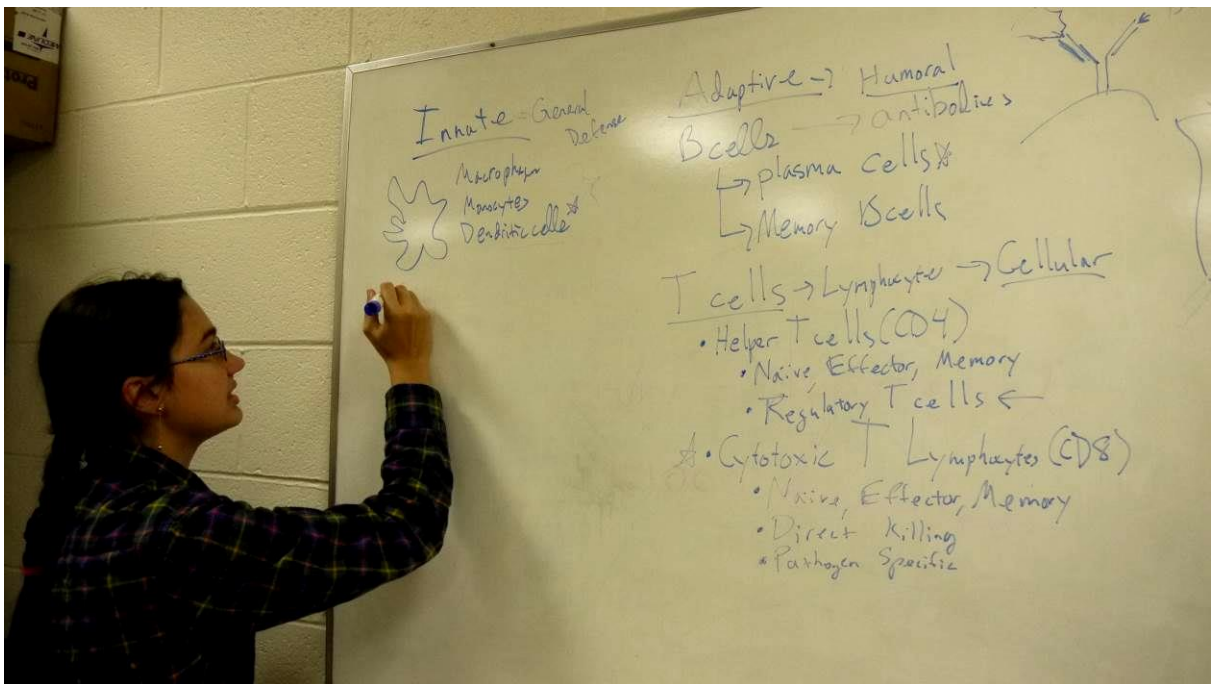 Innate - General
Defense
Macrophages
Monocytes
Dendritic cells
Adaptive → Humoral
B cells → antibodies
↳ plasma cells
↳ Memory B cells
T cells → Lymphocyte → Cellular
• Helper T cells (CD4)
• Naive, Effector, Memory
• Regulatory T cells ←
• Cytotoxic T Lymphocytes (CD8)
• Naive, Effector, Memory
• Direct Killing
• Pathogen Specific